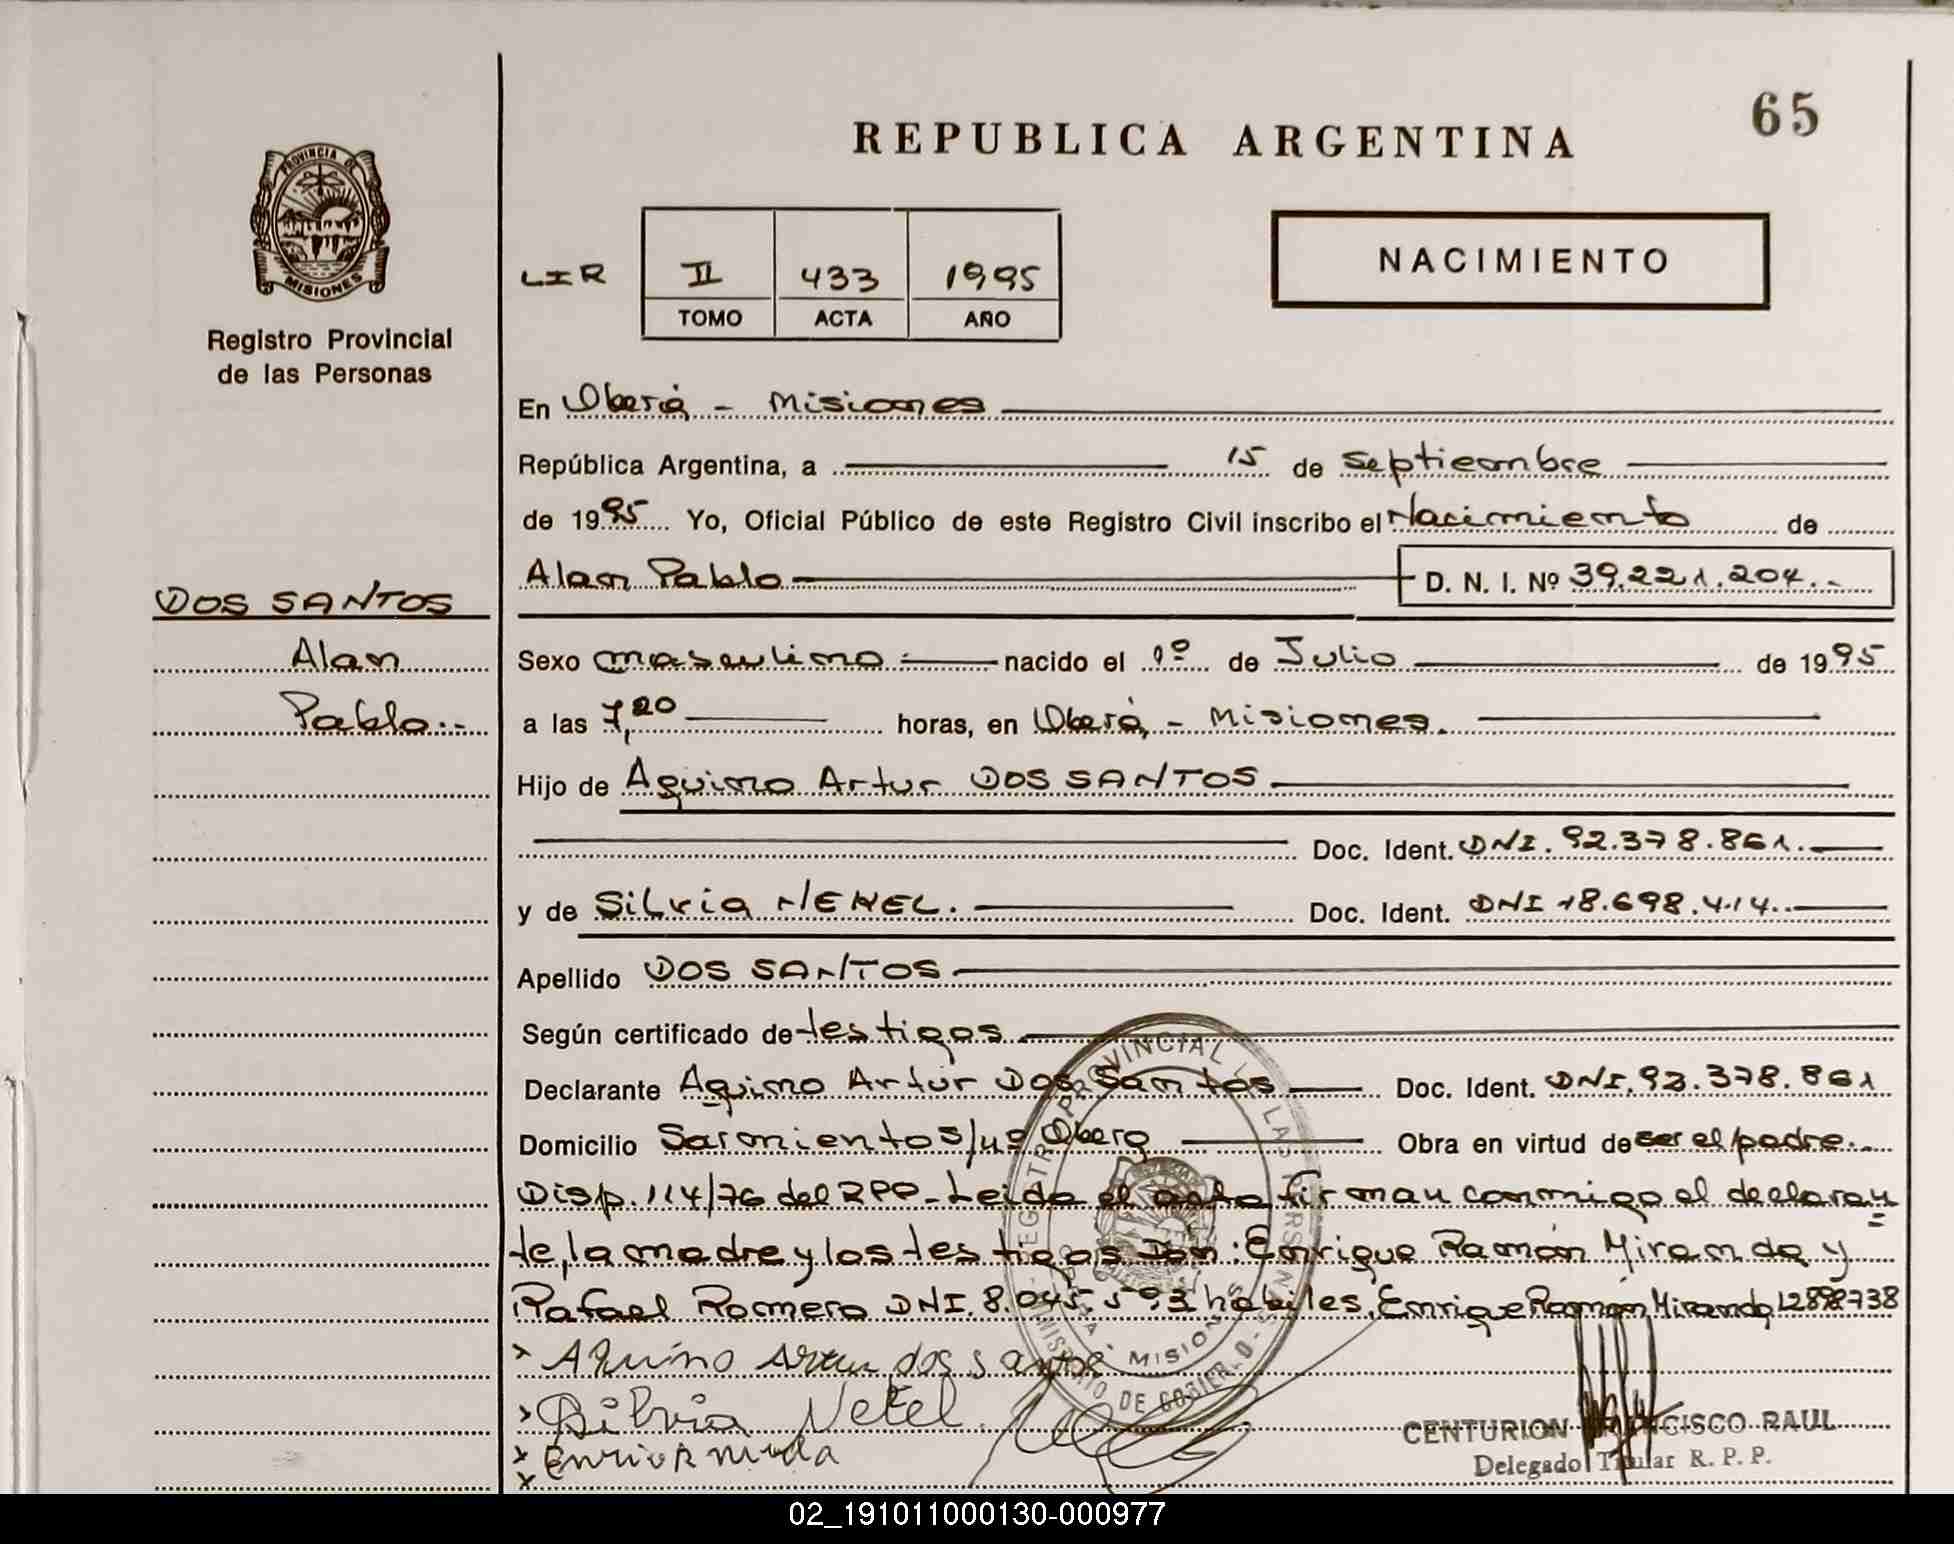 65
REPUBLICA ARGENTINA
PROVINCIA DE
MISIONES
NACIMIENTO
LIR II 433 1995
TOMO ACTA AÑO
Registro Provincial
de las Personas
En Oberá - Misiones
República Argentina, a 15 de Septiembre
de 1995 Yo, Oficial Público de este Registro Civil inscribo el Nacimiento de
Alan Pablo D. N. I. Nº 39.221.204.-
DOS SANTOS
Alan
Pablo.-
Sexo masculino.- nacido el 1º de Julio de 1995
a las 7,20 horas, en Oberá, - Misiones.
Hijo de Aquino Artur DOS SANTOS
Doc. Ident. DNI. 92.378.861.
y de Silvia NEKEL. Doc. Ident. DNI 18.698.414.
Apellido DOS SANTOS
Según certificado de testigos.
Declarante Aquino Artur Dos Santos Doc. Ident. DNI. 92.378.861
Domicilio Sarmiento s/nº Oberá Obra en virtud de ser el padre.-
Disp. 114/76 del RPP- Leida el acta firman conmigo el declaran
te, la madre y los testigos Don: Enrique Ramón Miranda y
Rafael Romero DNI. 8.045.593 habiles. Enrique Ramón Miranda 12898738
Aquino Artur dos santos
Silvia Nekel
REGISTRO PROVINCIAL DE LAS PERSONAS
MINISTERIO DE GOBIERNO
MISIONES
CENTURION FRANCISCO RAUL
Delegado Titular R. P. P.
02_191011000130-000977